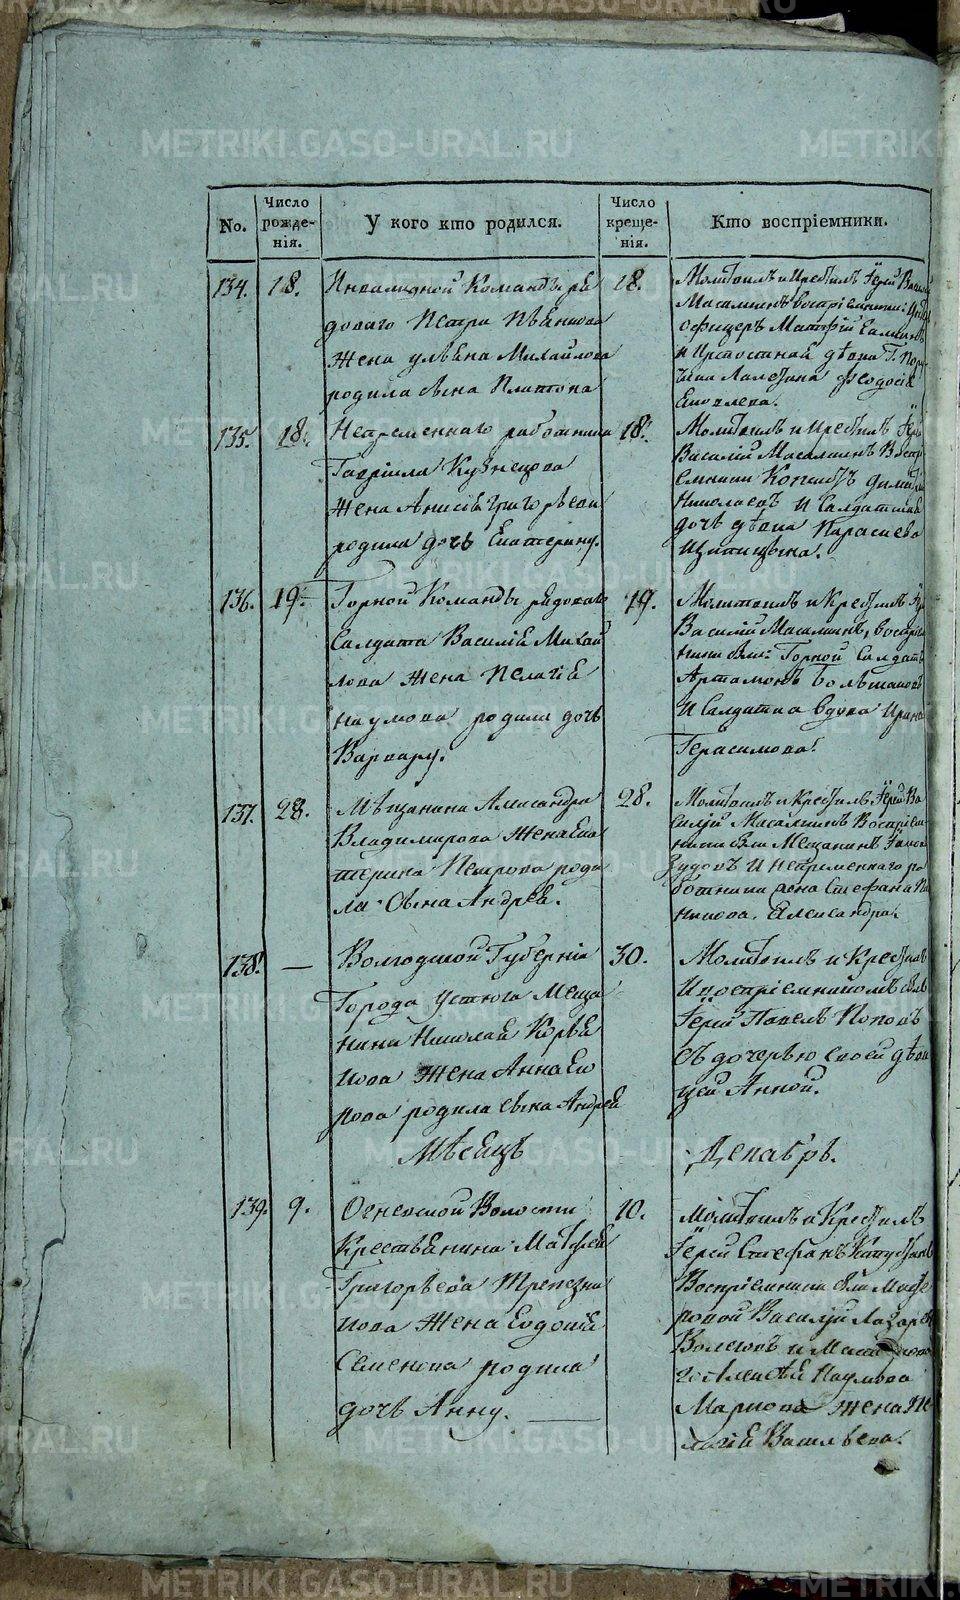 No.
Число рожде-нія.
У кого кто родился.
Число креще-нія.
Кто воспріемники.
134.
18.
Инвалидной Команды ря
доваго Петра Иванова
жена Ульяна Михайлова
родила сына Платона
18.
Молитвилъ и Крестилъ Іерей Васил
Масалкинъ воспріемники: Унтер
офицеръ Матфій
и Крепостная дѣвка Г. Пору
чика Феодосія
Яковлева.
135.
18.
Непременнаго работника
Гавріила Кузнецова
жена Анисія Григорьева
родила дочь Екатерину.
18.
Молитвилъ и Крестилъ Іерей
Василій Масалкинъ Воспрі
емники Копіистъ Димитрі
Николаевъ и Салдатская
дочь дѣвка
136.
19.
Горной Команды рядоваго
Салдата Василія Михай
лова жена Пелагія
Наумова родила дочь
Варвару.
19.
Молитвилъ и Крестилъ Іер
Василій Масалкинъ, воспріем
ники были: Горной Салдатъ
Артамонъ Большаковъ
и Салдатка вдова Ирина
Герасимова.
137.
28.
Мѣщанина Александра
Владимирова жена Ека
терина Петрова роди
ла сына Андрея.
28.
Молитвилъ и Крестилъ Іерей Ва
силій Масалкинъ Воспріем
ники были Мещанинъ
Зудовъ и непременнаго ра
ботника жена Стефана
Александра.
138.
—
Вологодской Губерніи
Города Устюга Меща
нина Николая Корья
кова жена Анна Его
рова родила сына Андрея
30.
Молитвилъ и Крестилъ
и воспріемникомъ былъ
Іерей Павелъ Поповъ
съ дочерью своей дѣви
цей Анной.
Мѣсяцъ
Декабрь.
139.
9.
Огневской Волости
Крестьянина Матфея
Григорьева Трапезни
кова жена Евдокія
Семенова родила
дочь Анну.
10.
Молитвилъ и Крестилъ
Іерей Стефанъ Капустинъ
Воспріемники были Масте
ровой Василій Лазаревъ
Волковъ и
го Алексѣя Наумова
Маркова жена Пе
лагія Васильева.
METRIKI.GASO-URAL.RU